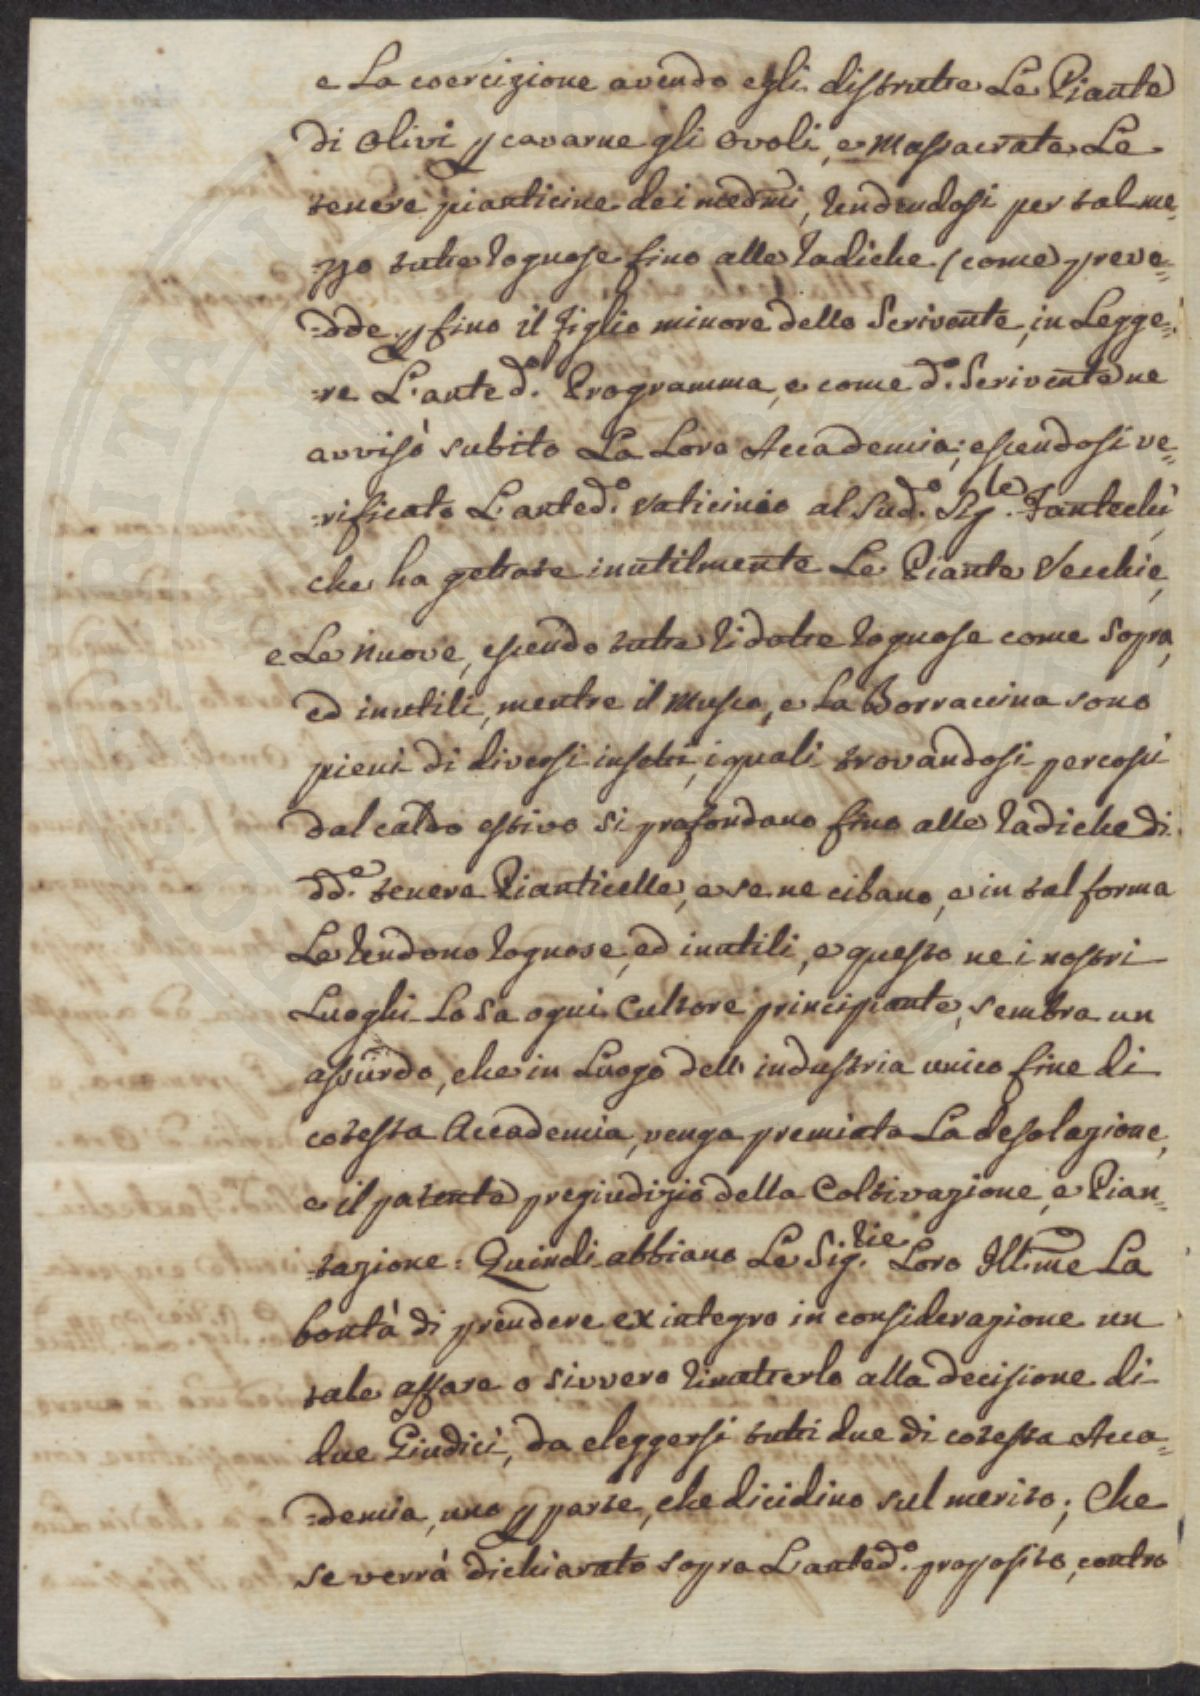 e La coercizione avendo egli distrutte Le Piante
di Olivi p cavarne gli Ovoli, e Massacrate Le
tenere pianticine dei med:mi, Rendendosi per tal me,,
zzo tutte Rognose fino alle Radiche (come preve=
=dde p fino il Figlio minore dello Scrivente, in Legge=
=re L'anted.o Programma, e come d.o Scrivente ne
avvisò subito La Loro Accademia; essendosi ve=
=rificato L'anted.o vaticinio al Sud.o Sig.le Fantechi,
che ha gettate inutilmente Le Piante Vecchie,
e Le Nuove, essendo tutte Ridotte Rognose come Sopra,
ed inutili, mentre il Musco, e La Borraccina sono
pieni di diversi insetti, i quali trovandosi percossi
dal caldo estivo si profondano fino alle Radiche di
dd.e tenere Pianticelle, e se ne cibano, e in tal forma
Le Rendono Rognose, ed inutili, e questo ne i nostri
Luoghi Lo Sa ogni Cultore principiante, sembra un
assurdo, che in Luogo dell' industria unico fine di
cotesta Accademia, venga premiata La desolazione,
e il patente pregiudizio della Coltivazione, e Pian=
=tazione: Quindi abbiano Le Sig.rie Loro Ill:me La
bontà di prendere ex integro in considerazione un
tale affare o sivvero Rimetterlo alla decisione di
due Giudici, da eleggersi tutti due di cotesta Acca=
=demia, uno p parte, che dicidino sul merito; Che
se verrà dichiarato sopra L'anted.o proposito, contro